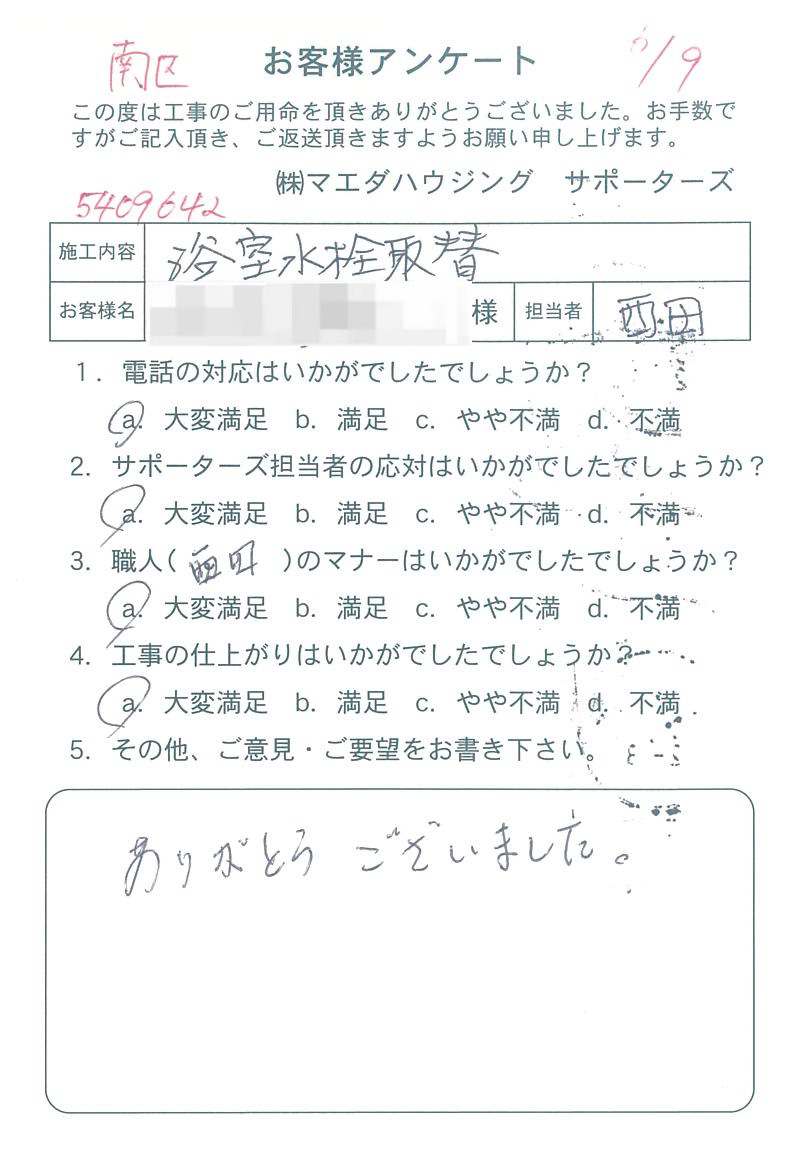 南区 お客様アンケート 6/9
この度は工事のご用命を頂きありがとうございました。お手数で
すがご記入頂き、ご返送頂きますようお願い申し上げます。
㈱マエダハウジング サポーターズ
5409642
施工内容 浴室水栓取替
お客様名 様 担当者 西田
1. 電話の対応はいかがでしたでしょうか?
a. 大変満足 b. 満足 c. やや不満 d. 不満
2. サポーターズ担当者の応対はいかがでしたでしょうか?
a. 大変満足 b. 満足 c. やや不満 d. 不満
3. 職人(西田)のマナーはいかがでしたでしょうか?
a. 大変満足 b. 満足 c. やや不満 d. 不満
4. 工事の仕上がりはいかがでしたでしょうか?
a. 大変満足 b. 満足 c. やや不満 d. 不満
5. その他、ご意見・ご要望をお書き下さい。
ありがとうございました。